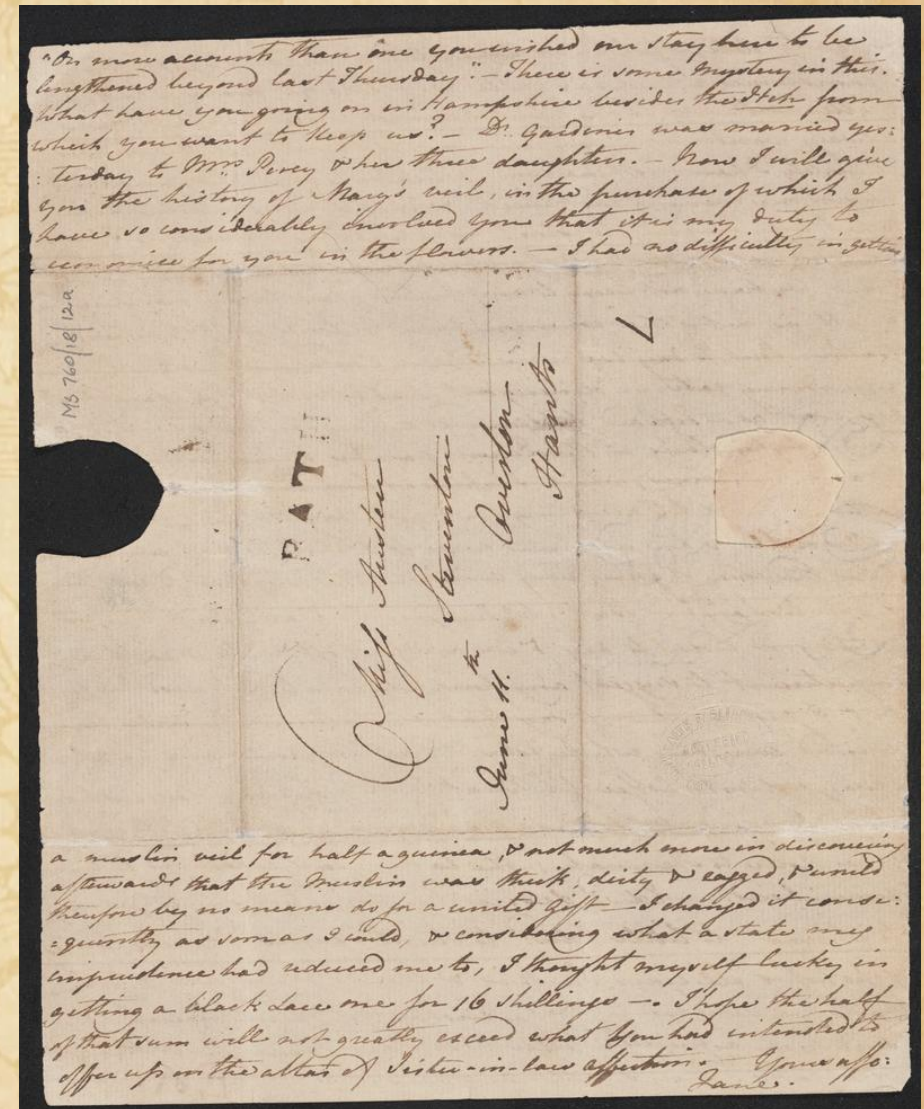 "On more accounts than one you wished our stay here to be
lengthened beyond last Thursday." - There is some Mystery in this.
What have you going on in Hampshire besides the Itch from
which you want to keep us? - Dr. Gardiner was married yes:
:terday to Mrs. Percy & her three daughters. - Now I will give
you the history of Mary's veil, in the purchase of which I
have so considerably involved you that it is my duty to
economise for you in the flowers. - I had no difficulty in getting
MS 760/18/12a
BATH
Miss Austen
Steventon
Overton
Hants
June 11.th
7
a muslin veil for half a guinea, & not much more in discovering
afterwards that the Muslin was thick, dirty & ragged, & would
therefore by no means do for a united Gift - I changed it conse:
:quently as soon as I could, & considering what a state my
imprudence had reduced me to, I thought myself lucky in
getting a black Lace one for 16 shillings -. I hope the half
of that sum will not greatly exceed what You had intended to
offer up on the altar of Sister-in-law affection. - Yours affec:
Jane.